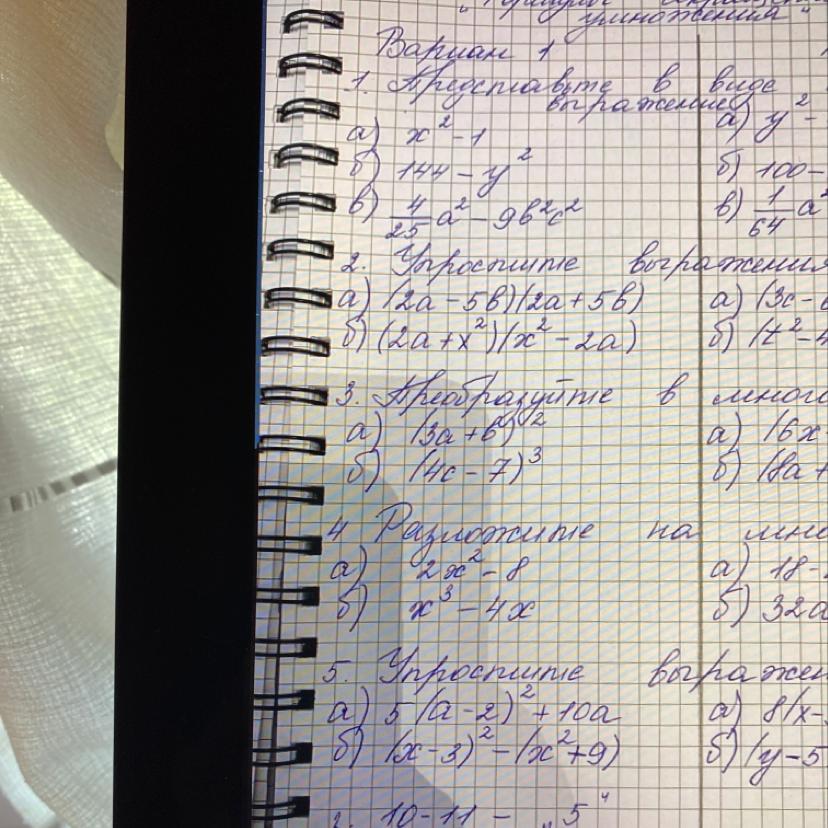 умножения"
Вариан 1
1. Представьте в виде
выражение
а) x² - 1
а) y² -
б) 144 - y²
б) 100 -
в) 4/25 a² - 9b²c²
в) 1/64 a²
2. Упростите выражения
а) (2a - 5b)(2a + 5b)
а) (3c -
б) (2a + x²)(x² - 2a)
б) (t² - 4
3. Преобразуйте в много
а) (3a + b)²
а) (6x
б) (4c - 7)³
б) (8a +
4 Разложите на мно
а) 2x² - 8
а) 18 -
б) x³ - 4x
б) 32a
5. Упростите выражен
а) 5(a - 2)² + 10a
а) 8(x -
б) (x - 3)² - (x² + 9)
б) (y - 5
10 - 11 - „5"